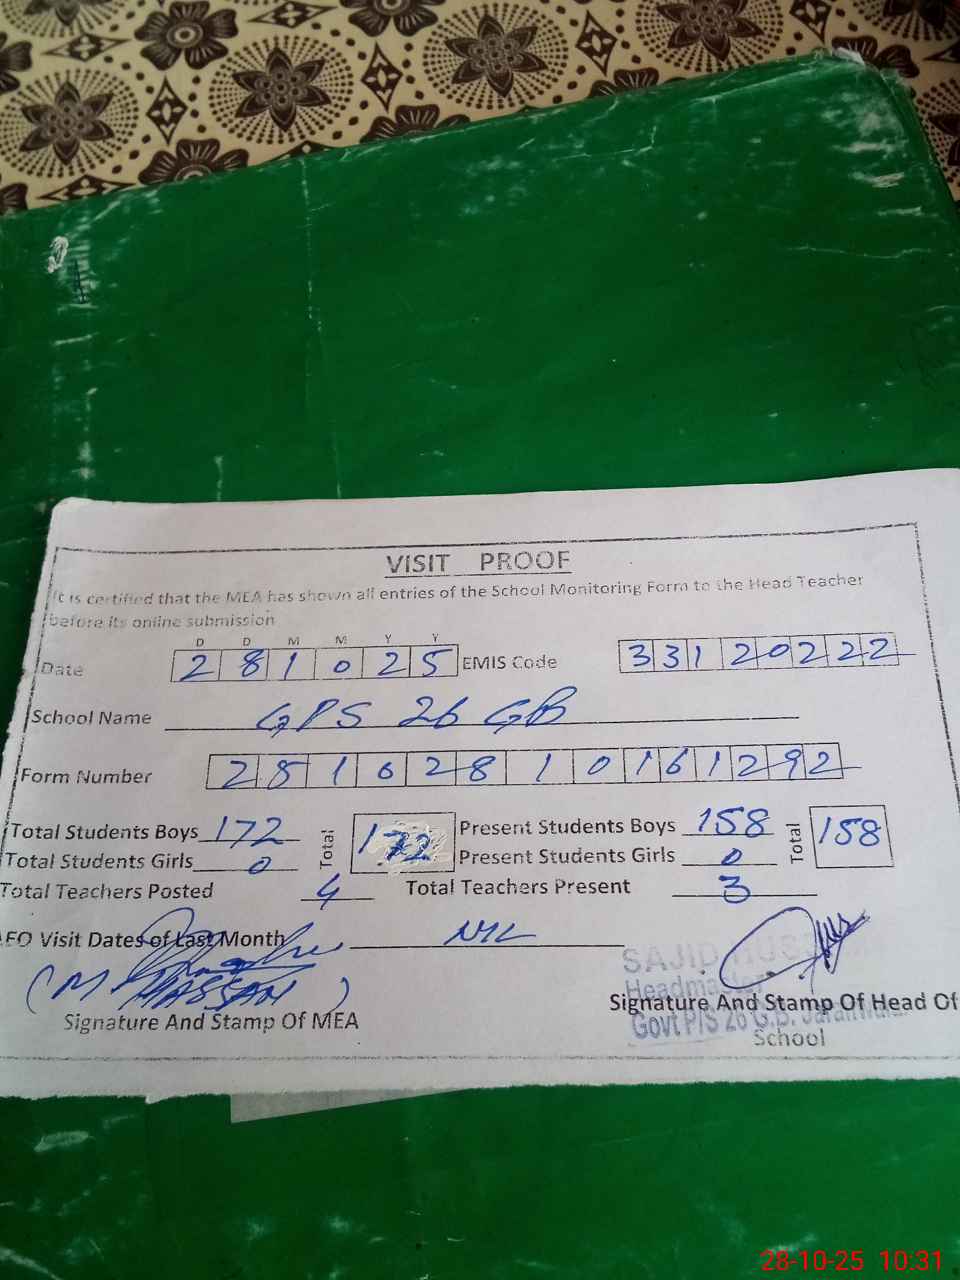 VISIT PROOF
It is certified that the MEA has shown all entries of the School Monitoring Form to the Head Teacher
before its online submission
D D M M Y Y
Date 2 8 1 0 2 5 EMIS Code 3 3 1 2 0 2 2 2
School Name GPS 26 GB
Form Number 2 8 1 0 2 8 1 0 1 6 1 2 9 2
Total Students Boys 172 Total 172 Present Students Boys 158 Total 158
Total Students Girls 0 Present Students Girls 0
Total Teachers Posted 4 Total Teachers Present 3
AEO Visit Dates of Last Month NIL
(M HASSAN)
Signature And Stamp Of MEA
SAJID
Headmaster
Govt P/S 26 G.B. Jaranwala
Signature And Stamp Of Head Of
School
28-10-25 10:31